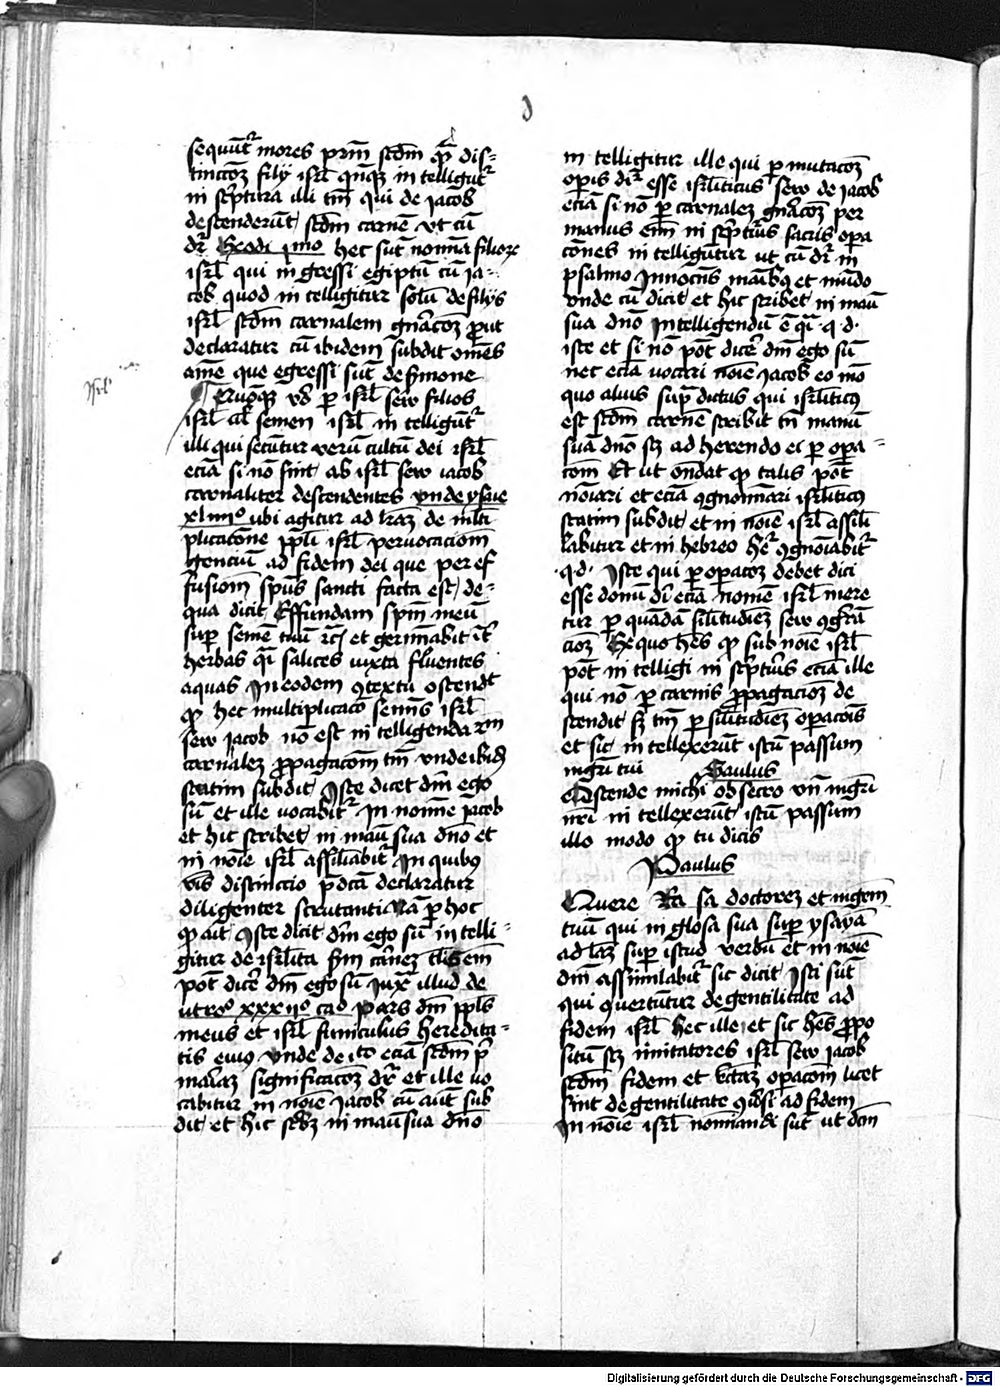 d
sequūt᷑ mores prim̄ scd̄m q̄ dis-
tinccōꝫ filij isrl̄ qn̄qꝫ in telligūt᷑
in sc̄ptura illi tm̄ qui de jacob
descenderūt scd̄m carnē vt cū
dr̄ Exodi pmo hec sūt nomīa filioꝝ
isrl̄ qui in gressi egiptū cū ja-
cob quod in telligitur solū de filijs
isrl̄ scd̄m carnalem gn̄acōꝫ ꝓut
declaratur cū ibidem subdit om̄es
aīme que egressi sūt de femore
Isrl̄
Qn̄qꝫ v̄o ꝑ isrl̄ seu filios
isrl̄ aūt semen isrl̄ in telligūt᷑
illi qui secūtur verū cultū dei isrl̄
eciā si nō sint ab isrl̄ seu iacob
carnaliter descendentes vnde ysaie
xliiijº ubi agitur ad lr̄aꝫ de mlti
plicatōne ppl̄i isrl̄ per vocaciom̄
genciū ad fidem dei que per ef
fusiom̄ spūs sancti facta est de-
qua dicit Effundam spm̄ meū
suꝑ semē tuū ⁊c̄ et germīabūt īt᷑
herbas qī salices iuxta fluentes
aquas In eodem ꝯtextu ostendit
ꝙ hec multiplicacō semīs isrl̄
seu jacob nō est in telligenda scd̄m
carnaleꝫ ꝓpagacōm tm̄ vnde ibid̄
statim subdit Iste dicet dn̄i ego
sū et ille vocabit᷑ In nomīe jacob
et hic scribet in manū sua dn̄o et
in noīe isrl̄ assilabit᷑ In quibꝯ
v̄bis distinccio p̄dc̄a declaratur
diligenter scrutanti Nā ꝑ hoc
ꝙ ait Iste dicit dn̄i ego sū in telli-
gitur de isrl̄ita scd̄m carneꝫ tl̄is em̄
pōt dicē dn̄i ego sū Juxᵃ illud de
utroº xxxijº caº Pars dn̄i ppl̄s
meus et isrl̄ funiculus heredita-
tis eiuꝯ vnde de isto eciā scd̄m p̄
mariaꝫ significacōꝫ dr̄ et ille vo
cabitur in noīe Jacob cū aūt sub
dit et hic scribꝫ in manū sua dn̄o
in telligitur ille qui ꝑ imitacōꝫ
operis dr̄ esse isrl̄iticus seu de jacob
eciā si nō ꝑ carnaleꝫ gn̄acōꝫ per
manus em̄ in sc̄pturis sacris opa
cōnes in telligūtur ut cū dr̄ in
psalmo Innocens manibꝯ et mūdo
vnde cū dicit et hic scribet in manū
sua dn̄o Intelligendū ē qī ·q·d·
iste et si nō pōt dicē dn̄i ego sū
nec eciā vocari noīe Jacob eo mō
quo alius supᵃ dictus qui isrl̄iticꝯ
est scd̄m carnē scribit tn̄ manū
suā dn̄o scꝫ ad herendo ei ꝑ opa-
cōm Et ut ondat ꝙ talis pōt
nōiari et eciā ꝯgnoīnari isrl̄iticꝯ
statim subdit et in noīe isrl̄ assili
labitur et in hebreo hēt᷑ ꝯgnoīabit᷑
·q·d· Iste qui ꝑ opacōꝫ debet dici
esse domī dī eciā nomē isrl̄ mere
tur ꝑ quādā silitudiēꝫ seu ꝯgrua
ciōꝫ Ex quo hēs ꝙ sub noīe isrl̄
pōt in telligi in sc̄pturis eciā ille
qui nō ꝑ carnis ꝓpagaciōꝫ de
scendit sꝫ tm̄ ꝑ silitudiēꝫ opacōis
et sic in tellexerūt istū passum
mgr̄i tui Saulus
Ostende michi obsecro vn̄ mgr̄i
nr̄i in tellexerūt istū passum
illo modo ꝙ tu dicis
Paulus
Quere Ra sa doctoreꝫ et mgr̄m
tuū qui in glosa sua suꝑ ysayā
ad lr̄aꝫ suꝑ istud verbū et in noīe
dn̄i assimilabit᷑ sic dicit Isti sūt
qui ꝯuertūtur de gentilitate ad
fidem isrl̄ hec ille et sic hēs ꝓpo
situ scꝫ imitatores isrl̄ seu jacob
scd̄m fidem et rc̄taꝫ opacōm licet
sint de gentilitate ꝯu̓si ad fidem
In noīe isrl̄ nomīandi sūt ut dn̄i
Digitalisierung gefördert durch die Deutsche Forschungsgemeinschaft - DFG